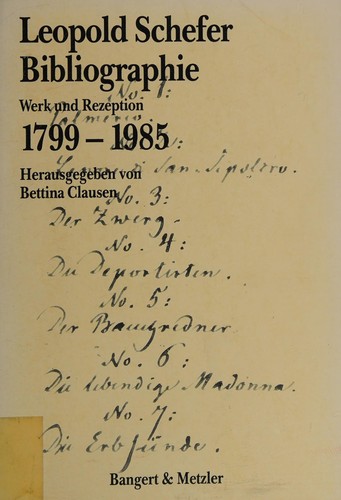 Leopold Schefer
Bibliographie
No. 1:
Werk und Rezeption
Palmerio.
1799 – 1985
Herausgegeben von
di San-Sepolcro.
Bettina Clausen
No. 3:
Der Zwerg.
No. 4:
Die Deportirten.
No. 5:
Der Baumredner
No. 6:
Die lebendige Madonna.
No. 7:
Die Erbsünde.
Bangert & Metzler